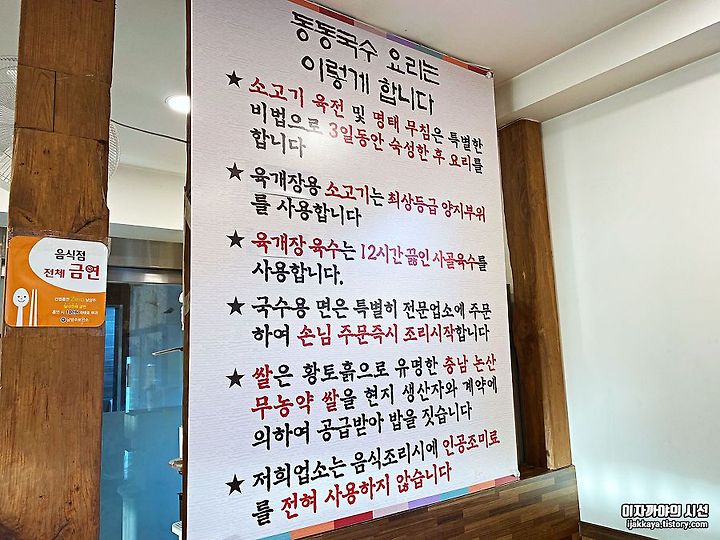 동동국수 요리는
이렇게 합니다
★ 소고기 육전 및 명태 무침은 특별한
비법으로 3일동안 숙성한 후 요리를
합니다
★ 육개장용 소고기는 최상등급 양지부위
를 사용합니다
★ 육개장 육수는 12시간 끓인 사골육수를
사용합니다.
★ 국수용 면은 특별히 전문업소에 주문
하여 손님 주문즉시 조리시작합니다
★ 쌀은 황토흙으로 유명한 충남 논산
무농약 쌀을 현지 생산자와 계약에
의하여 공급받아 밥을 짓습니다
★ 저희업소는 음식조리시에 인공조미료
를 전혀 사용하지 않습니다
음식점
전체 금연
이자까야의 시선
ijakkaya.tistory.com